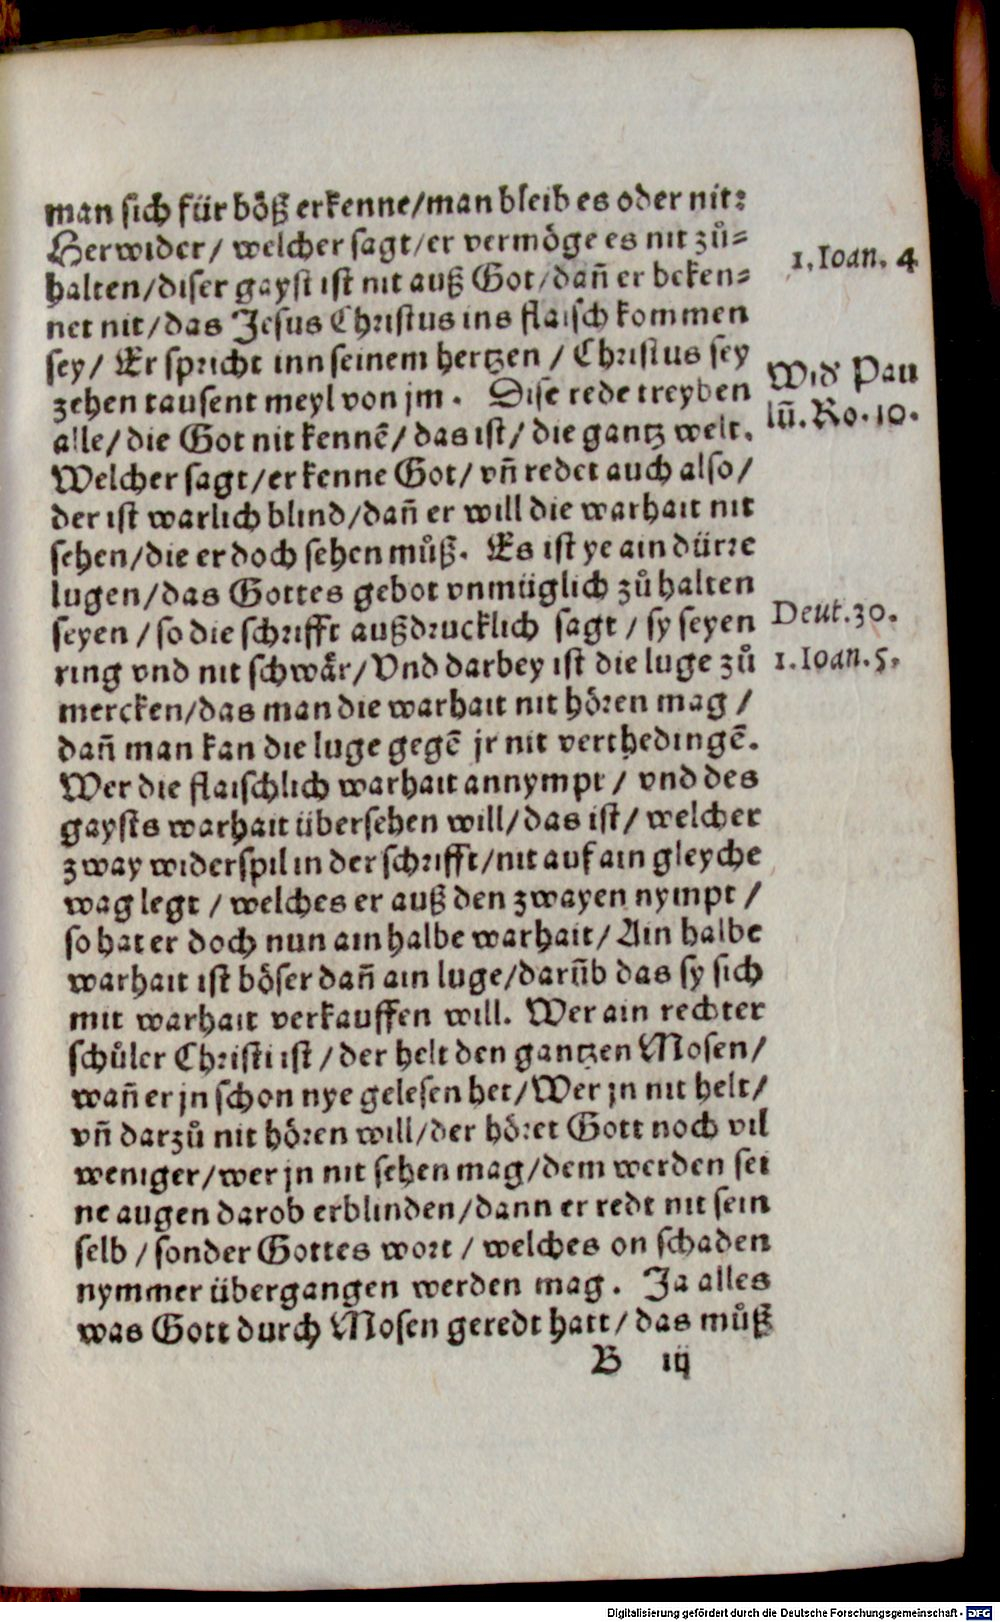 man sich für böß erkenne/man bleib es oder nit:
Herwider/ welcher sagt/er vermöge es nit zů-
halten/diser gayst ist nit auß Got/dañ er beken-
net nit/das Jesus Christus ins flaisch kommen
sey/ Er spricht inn seinem hertzen / Christus sey
zehen tausent meyl von jm. Dise rede treyben
alle/die Got nit kennē/das ist/die gantz welt.
Welcher sagt/er kenne Got/vñ redet auch also/
der ist warlich blind/dañ er will die warhait nit
sehen/die er doch sehen můß. Es ist ye ain dürre
lugen/das Gottes gebot vnmüglich zů halten
seyen/so die schrifft außdrucklich sagt/sy seyen
ring vnd nit schwår/Vnd darbey ist die luge zů
mercken/das man die warhait nit hören mag/
dañ man kan die luge gegē jr nit verthedingē.
Wer die flaischlich warhait annympt/ vnd des
gaysts warhait übersehen will/das ist/welcher
zway widerspil in der schrifft/nit auf ain gleyche
wag legt/welches er auß den zwayen nympt/
so hat er doch nun ain halbe warhait/Ain halbe
warhait ist böser dañ ain luge/darūb das sy sich
mit warhait verkauffen will. Wer ain rechter
schůler Christi ist/der helt den gantzen Mosen/
wañ er jn schon nye gelesen het/Wer jn nit helt/
vñ darzů nit hören will/der höret Gott noch vil
weniger/wer jn nit sehen mag/dem werden sei
ne augen darob erblinden/dann er redt nit sein
selb/sonder Gottes wort/welches on schaden
nymmer übergangen werden mag. Ja alles
was Gott durch Mosen geredt hatt/das můß
B iij
1. Ioan. 4
Wid' Pau
lū. Ro. 10.
Deut. 30.
1. Ioan. 5.
Digitalisierung gefördert durch die Deutsche Forschungsgemeinschaft - DFG